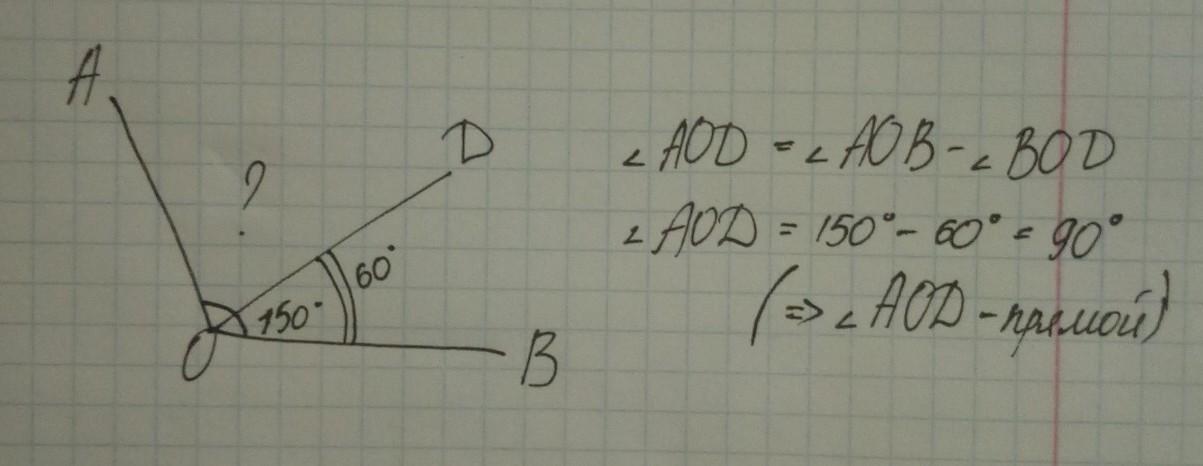 A
D
?
60°
150°
O
B
∠AOD = ∠AOB - ∠BOD
∠AOD = 150° - 60° = 90°
(=> ∠AOD - прямой)